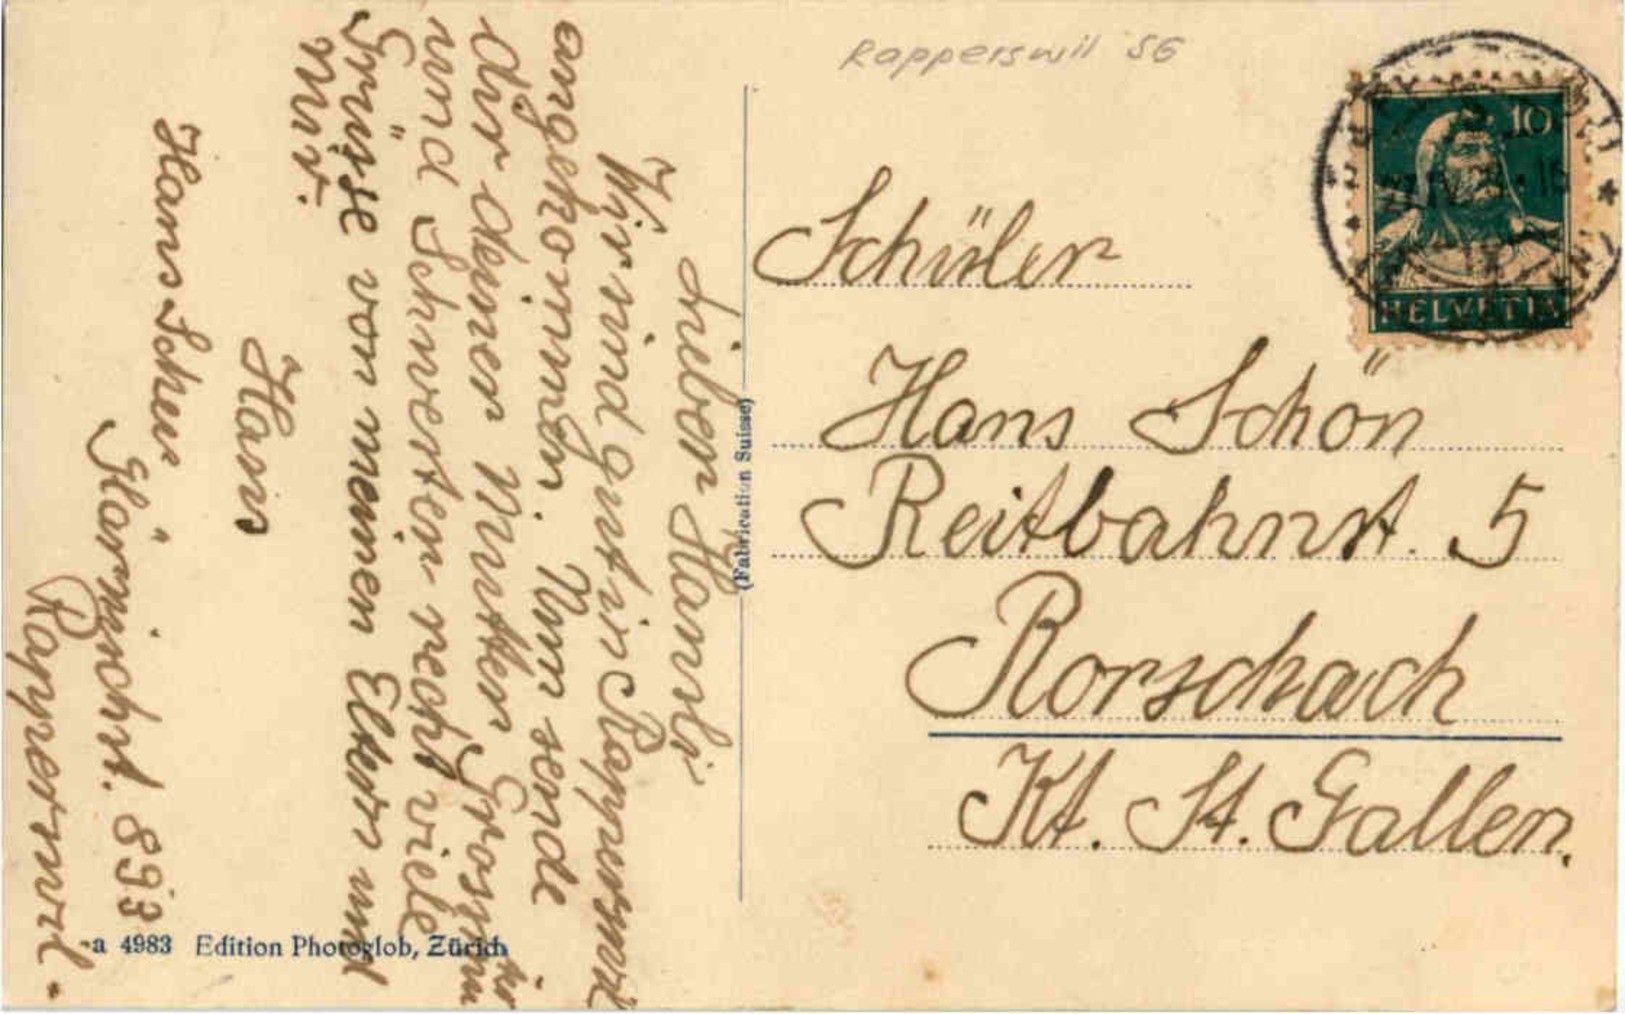 Rapperswil SG
10
HELVETIA
Schüler
Hans Schön
Reitbahnst. 5
Rorschach
Kt. St. Gallen.
(Fabrication Suisse)
Lieber Hansli
Wir sind gut in Rapperswil
angekommen. Nun sende
Dir deiner Mutter Grossmutter
und Schwester recht viele
Grüsse von meinen Eltern und
mir.
Hans
Hans
Glärnischst. 893
Rapperswil.
a 4983 Edition Photoglob, Zürich